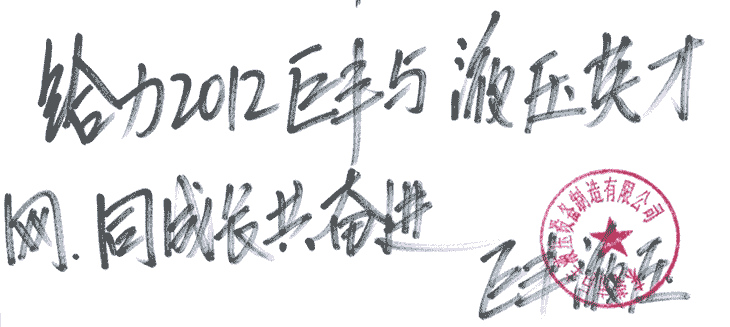 给力2012巨丰与液压英才
网.同成长共奋进
巨丰液压
液压设备制造有限公司